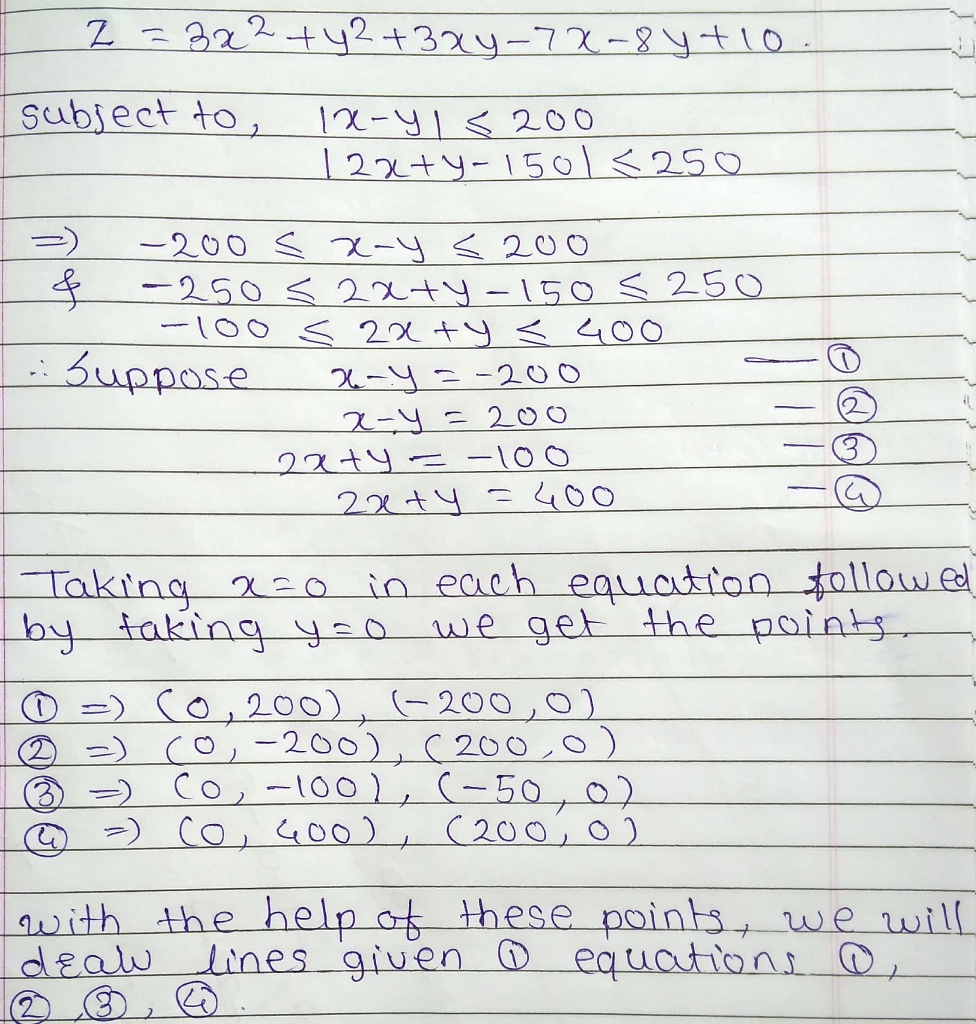 Z = 3x² + y² + 3xy - 7x - 8y + 10.
subject to, |x-y| ≤ 200
|2x+y-150| ≤ 250
⇒ -200 ≤ x-y ≤ 200
& -250 ≤ 2x+y-150 ≤ 250
-100 ≤ 2x+y ≤ 400
∴ Suppose x-y = -200 — ①
x-y = 200 — ②
2x+y = -100 — ③
2x+y = 400 — ④
Taking x=0 in each equation followed
by taking y=0 we get the points.
① ⇒ (0,200), (-200,0)
② ⇒ (0,-200), (200,0)
③ ⇒ (0,-100), (-50,0)
④ ⇒ (0,400), (200,0)
with the help of these points, we will
draw lines given ① equations ①,
②, ③, ④.